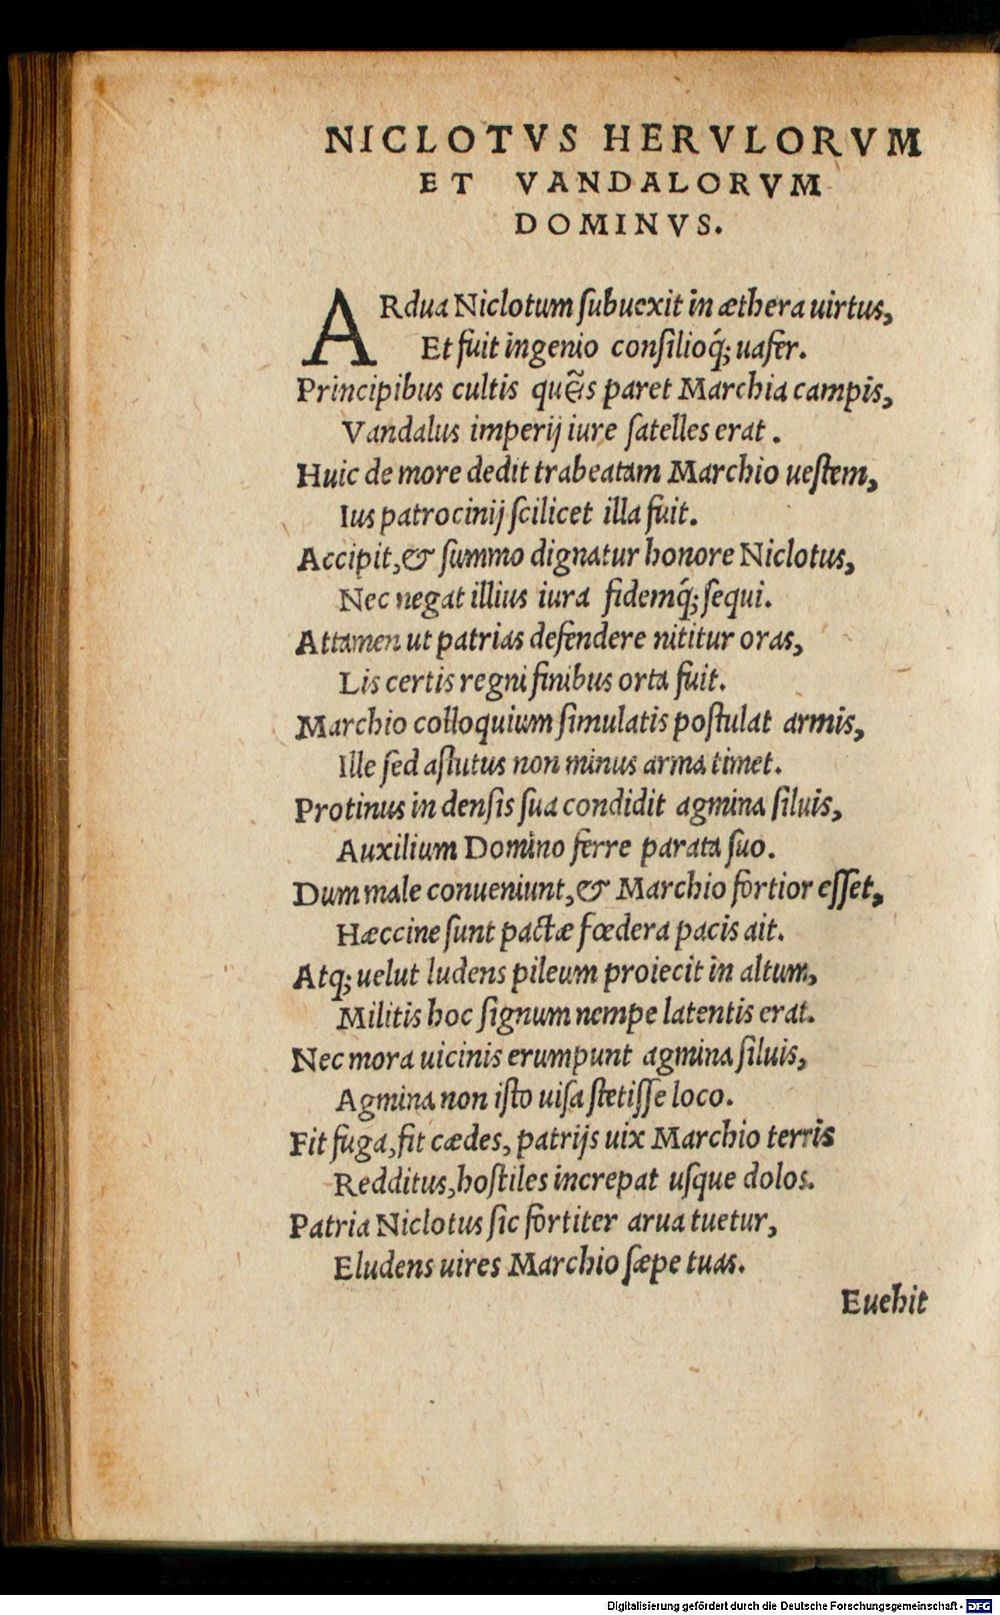 NICLOTVS HERVLORVM
ET VANDALORVM
DOMINVS.
ARdua Niclotum ſubuexit in æthera uirtus,
Et fuit ingenio conſilioq́; uafer.
Principibus cultis quẽis paret Marchia campis,
Vandalus imperij iure ſatelles erat.
Huic de more dedit trabeatam Marchio ueſtem,
Ius patrocinij ſcilicet illa fuit.
Accipit, & ſummo dignatur honore Niclotus,
Nec negat illius iura fidemq́; ſequi.
Attamen ut patrias defendere nititur oras,
Lis certis regni finibus orta fuit.
Marchio colloquium ſimulatis poſtulat armis,
Ille ſed aſtutus non minus arma timet.
Protinus in denſis ſua condidit agmina ſiluis,
Auxilium Domino ferre parata ſuo.
Dum male conueniunt, & Marchio fortior eſſet,
Hæccine ſunt pactæ fœdera pacis ait.
Atq; uelut ludens pileum proiecit in altum,
Militis hoc ſignum nempe latentis erat.
Nec mora uicinis erumpunt agmina ſiluis,
Agmina non iſto uiſa ſtetiſſe loco.
Fit fuga, fit cædes, patrijs uix Marchio terris
Redditus, hoſtiles increpat uſque dolos.
Patria Niclotus ſic fortiter arua tuetur,
Eludens uires Marchio ſæpe tuas.
Euehit
Digitalisierung gefördert durch die Deutsche Forschungsgemeinschaft - DFG